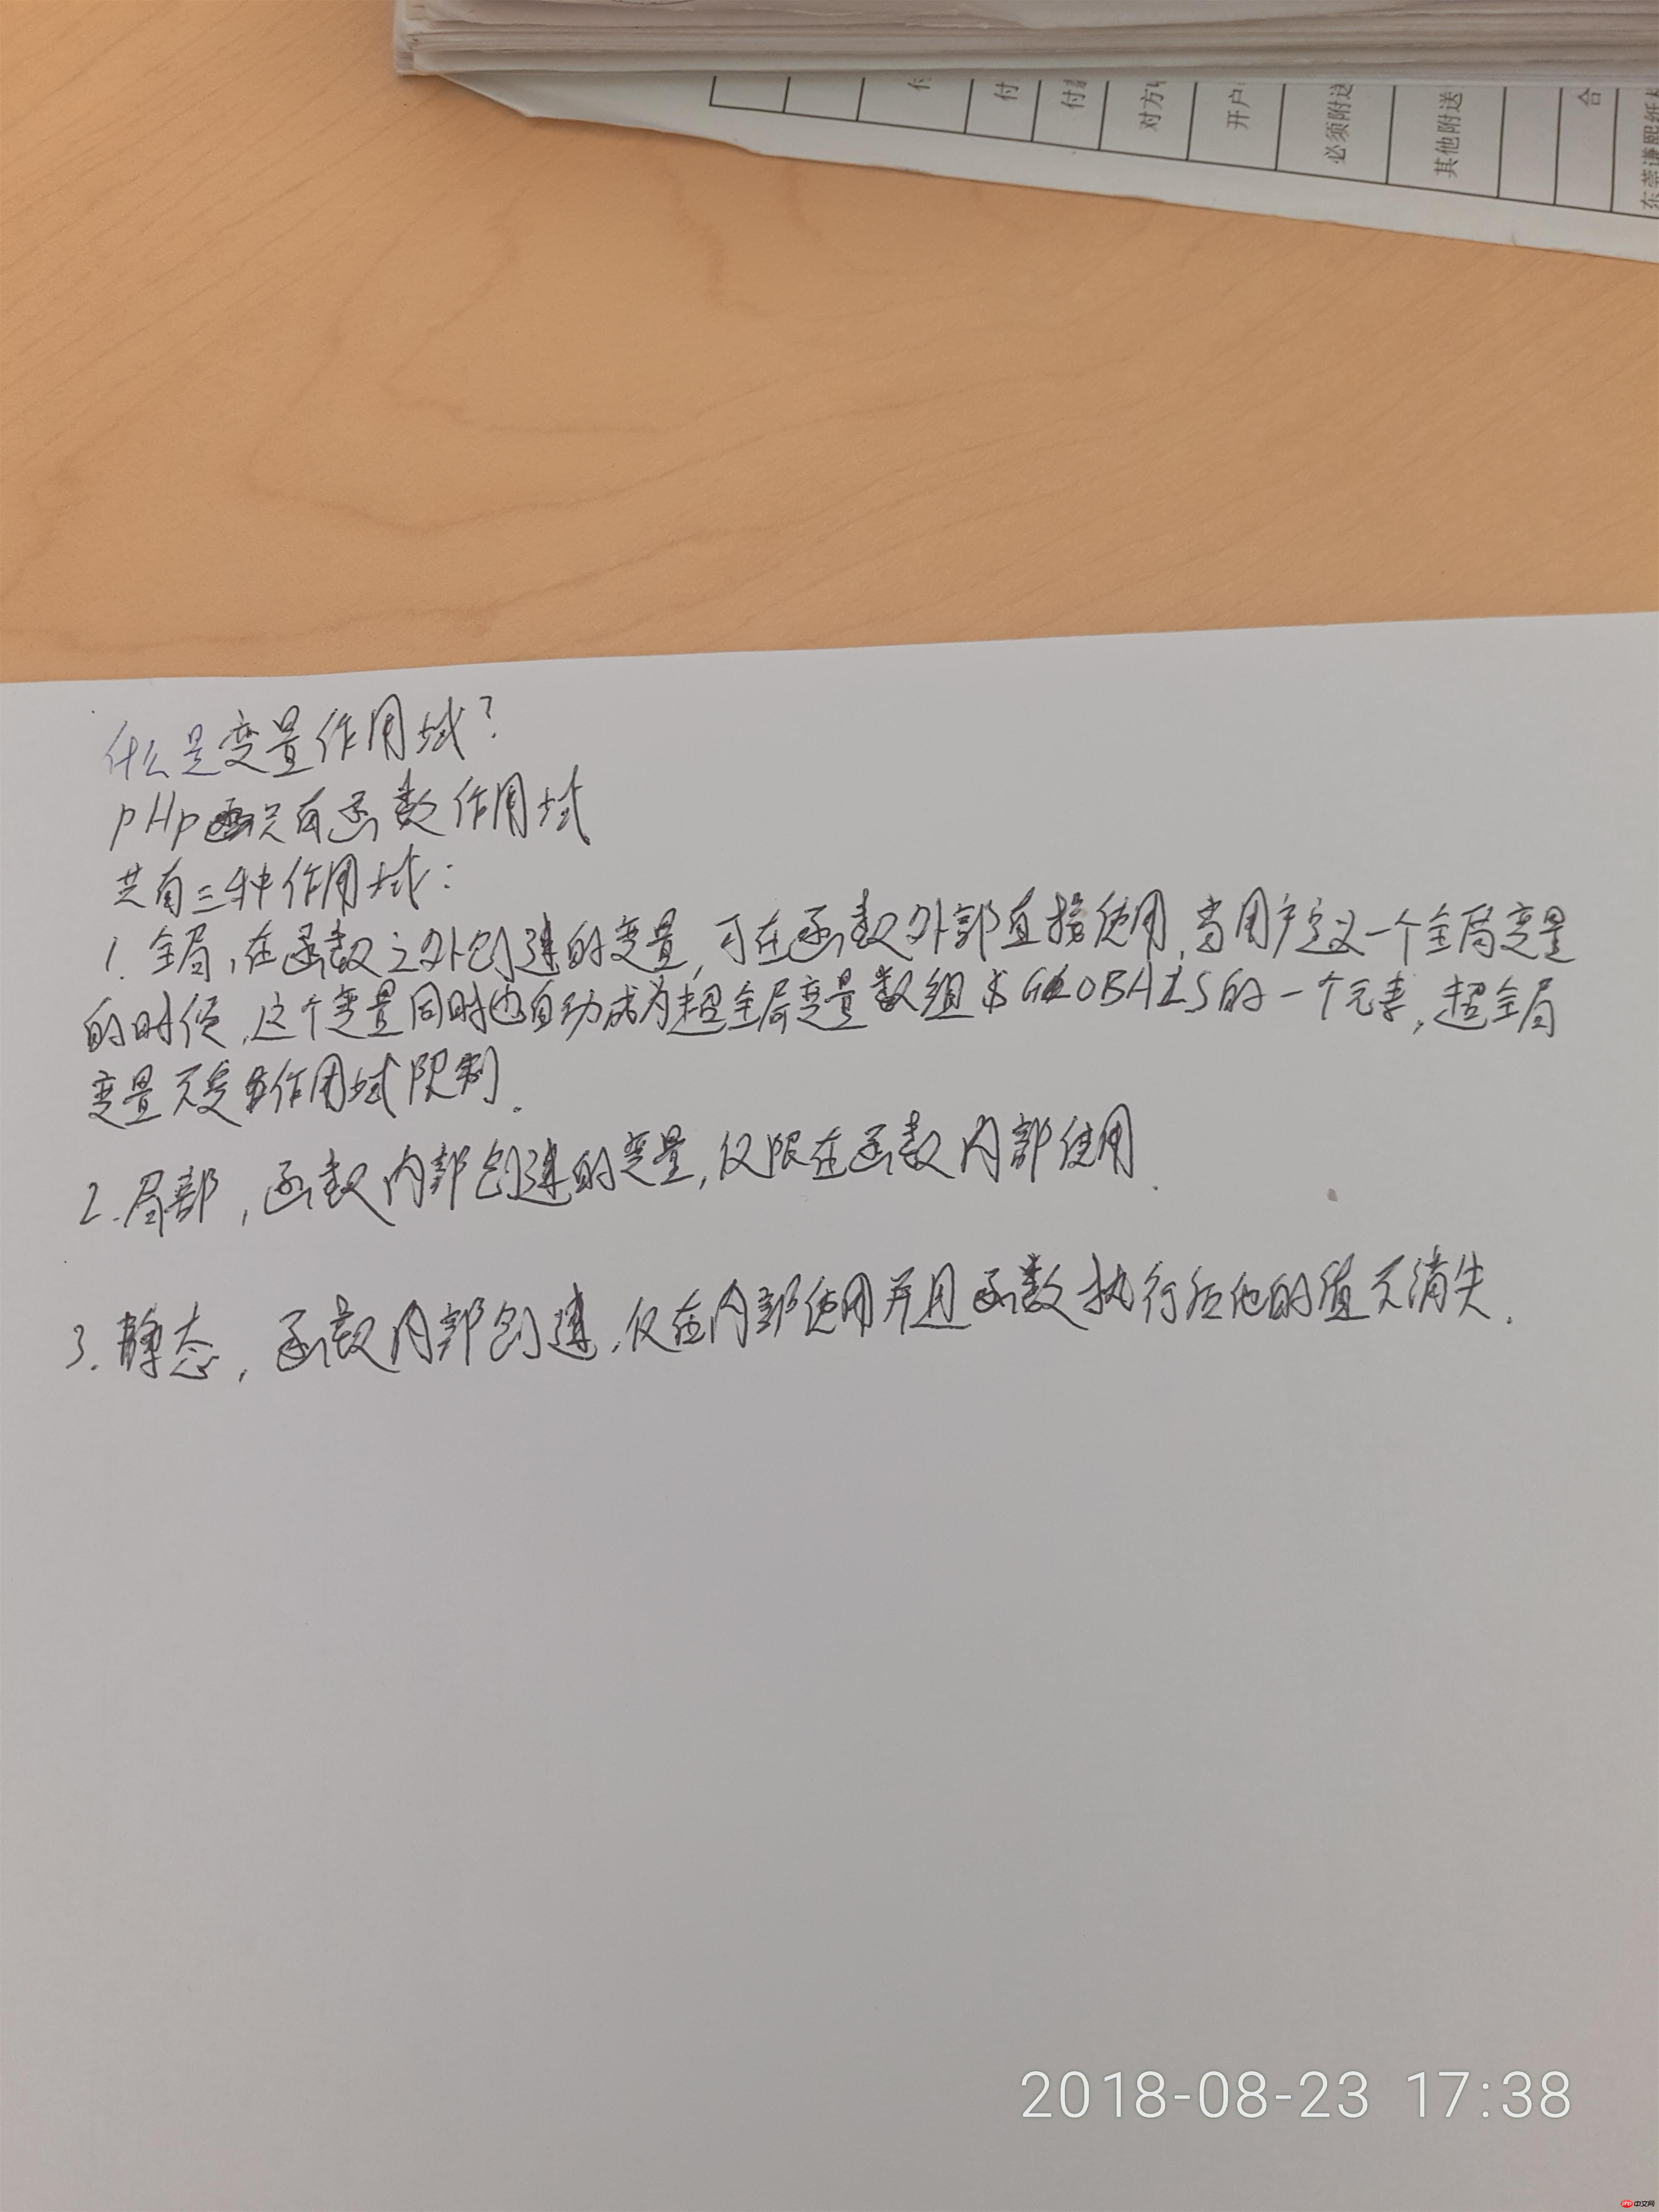 付
付
付
对方
开户
必须附送
其他附送
合
东莞谦熙纸
什么是变量作用域?
PHP只有函数作用域
共有三种作用域:
1. 全局,在函数之外创建的变量,可在函数外部直接使用,当用户定义一个全局变量
的时候,这个变量同时也自动成为超全局变量数组$GLOBALS的一个元素,超全局
变量不受作用域限制.
2.局部,函数内部创建的变量,仅限在函数内部使用.
3.静态,函数内部创建,仅在内部使用并且函数执行后他的值不消失.
2018-08-23 17:38
php中文网